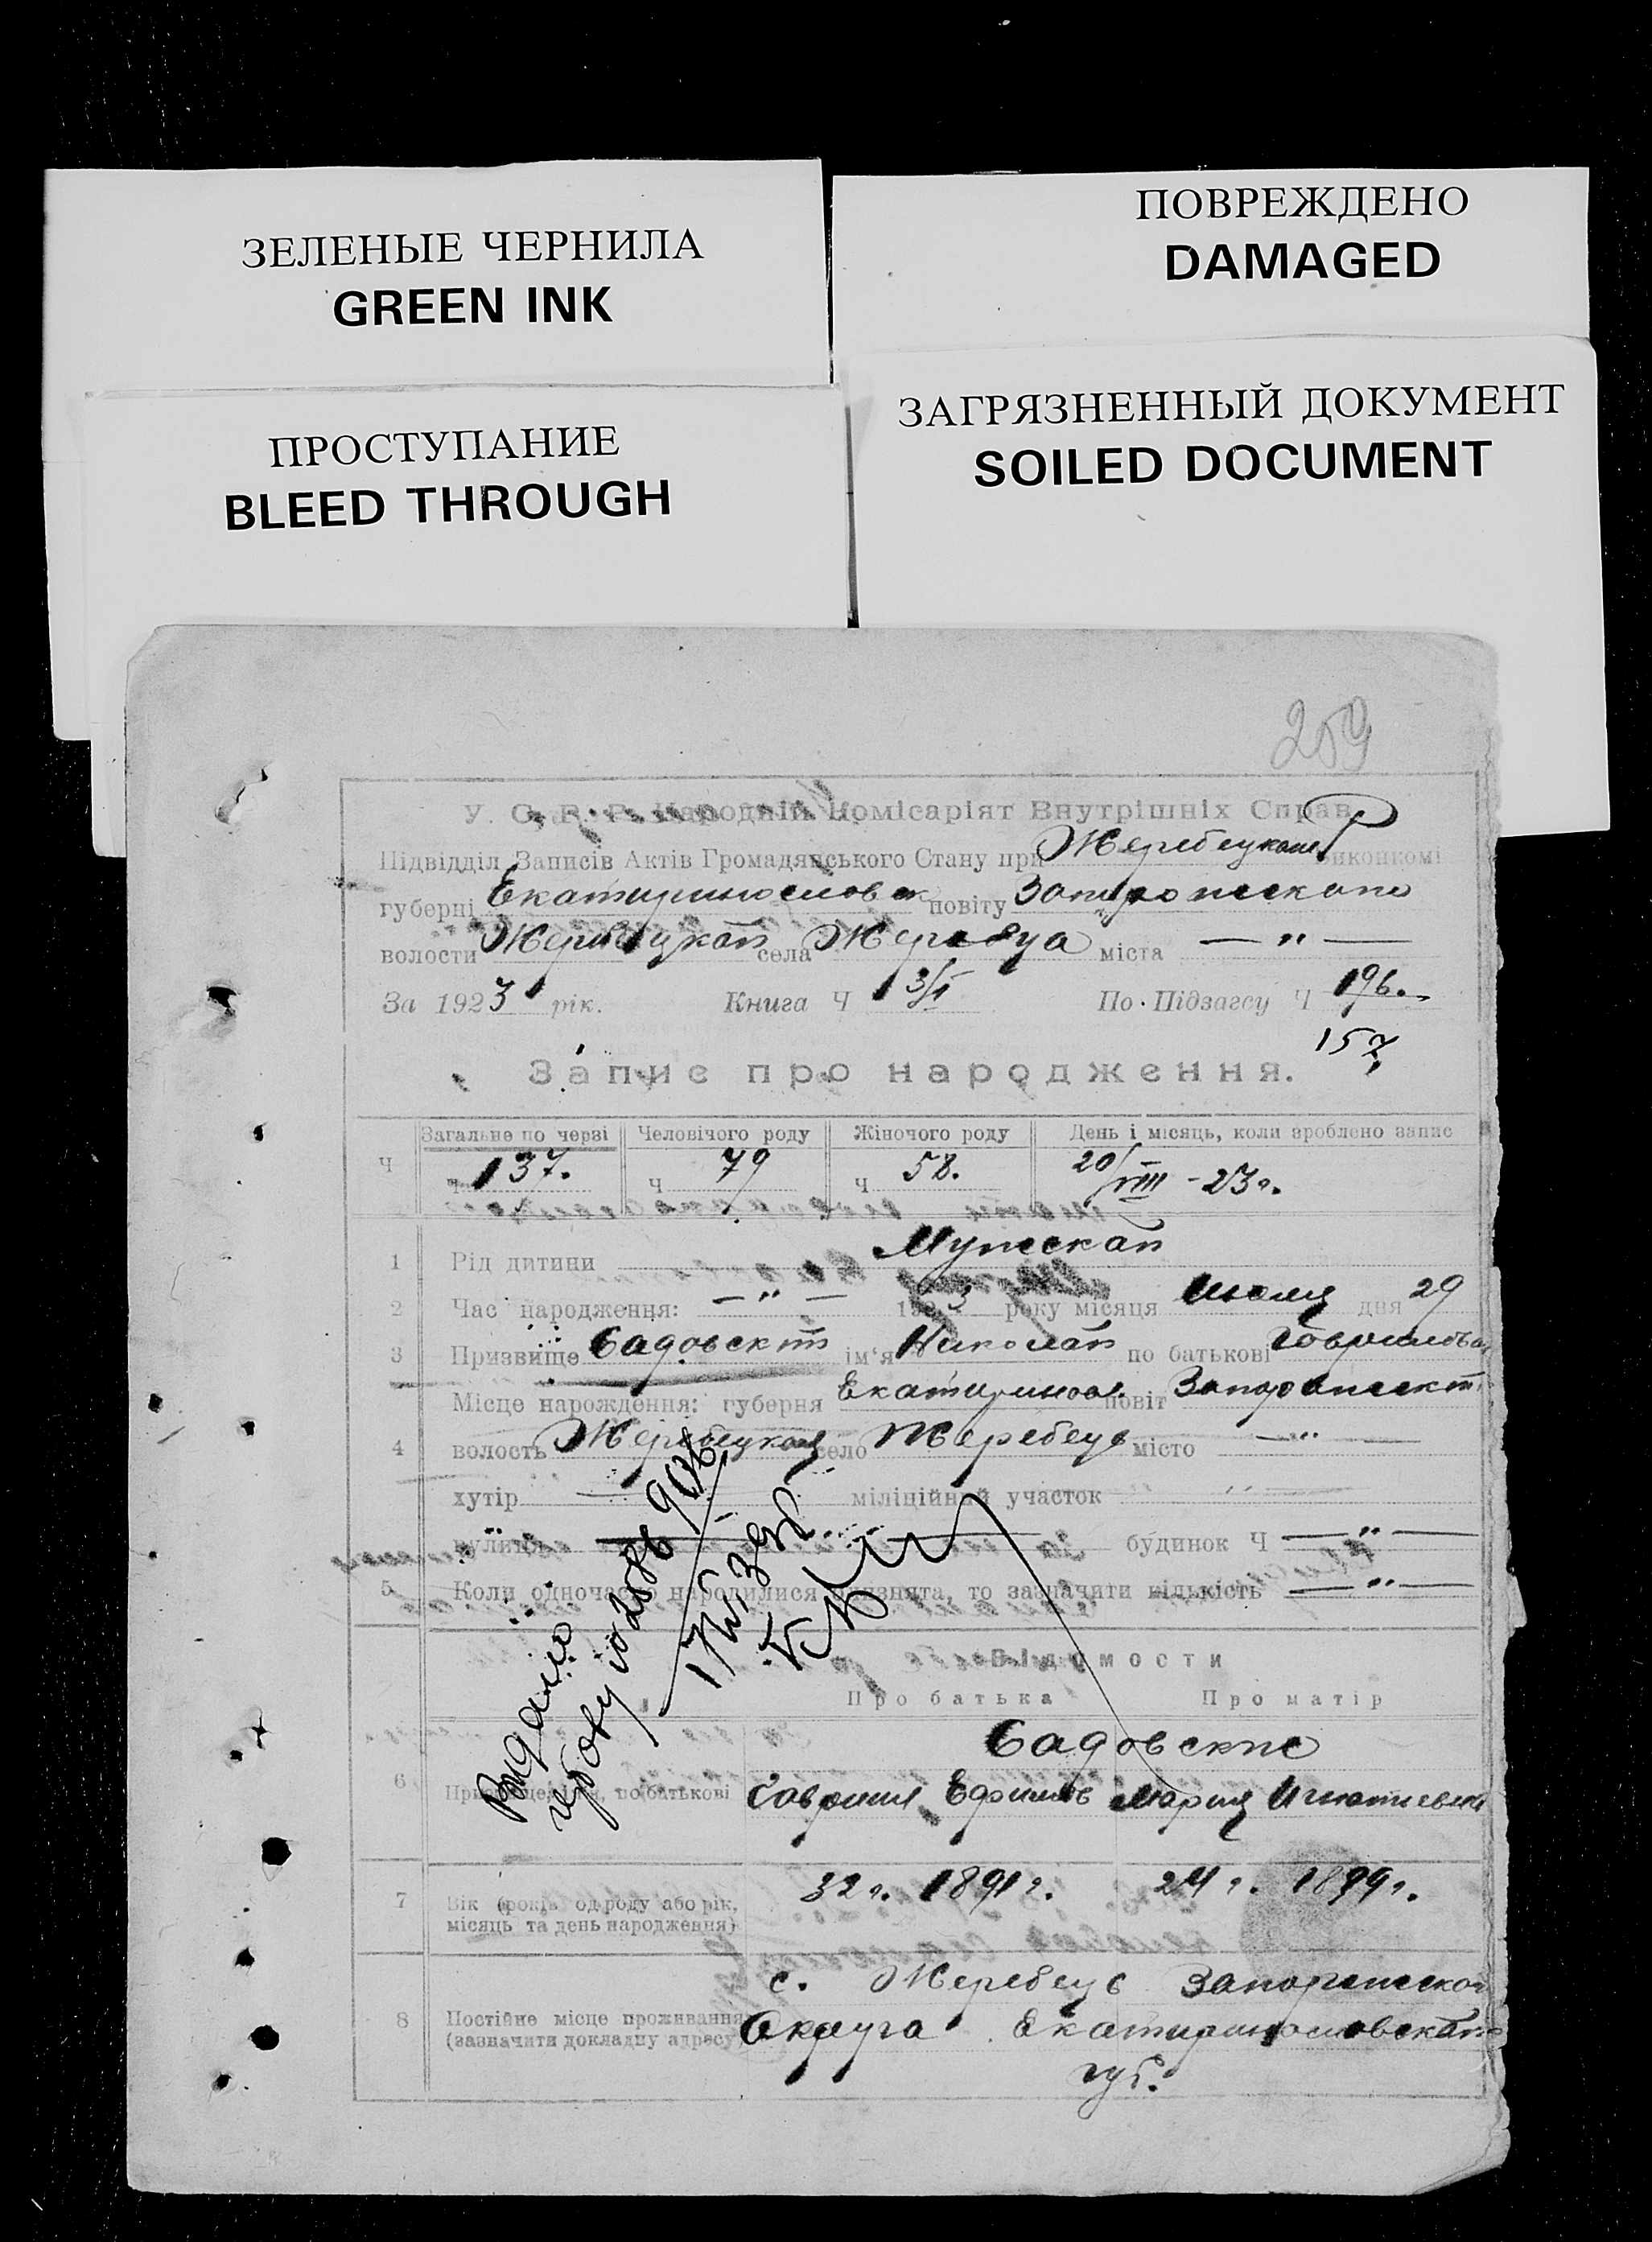 ЗЕЛЕНЫЕ ЧЕРНИЛА
GREEN INK
ПОВРЕЖДЕНО
DAMAGED
ПРОСТУПАНИЕ
BLEED THROUGH
ЗАГРЯЗНЕННЫЙ ДОКУМЕНТ
SOILED DOCUMENT
259
У. С. Р. Р. Народній Комісаріят Внутрішніх Справ
Підвідділ Записів Актів Громадянського Стану при Жеребецком виконкомі
губерні Екатеринославск повіту Запорожскаго
волости Жеребецкой села Жеребца міста — " —
За 1923 рік. Книга Ч 3/I По Підзагсу Ч 196.
157
Запис про народження.
Загальне по черзі Человічого роду Жіночого роду День і місяць, коли зроблено запис
Ч Ч 137. Ч 79 Ч 58. 20/VIII - 23 г.
1 Рід дитини Мужская
2 Час народження: — " — 1923 року місяця Июля дня 29
3 Призвище Садовский ім'я Николай по батькові
Місце народження: губерня Екатериносл. повіт
4 волость Жеребецкая село Жеребец місто — " —
хутір міліційний участок "
вулиця будинок Ч — " —
5 Коли одночасно народилися близнята, то зазначити кількість — " —
Відомости
Про батька Про матір
Садовские
6 Призвище, ім'я, по батькові Гавриил Ефимов Мария Игнатиевна
7 Вік (років од роду або рік, 32 г. 1891 г. 24 г. 1899 г.
місяць та день народження)
с. Жеребец Запорожской
8 Постійне місце проживання Округа Екатеринославской
(зазначити докладну адресу)
губ.
Видано